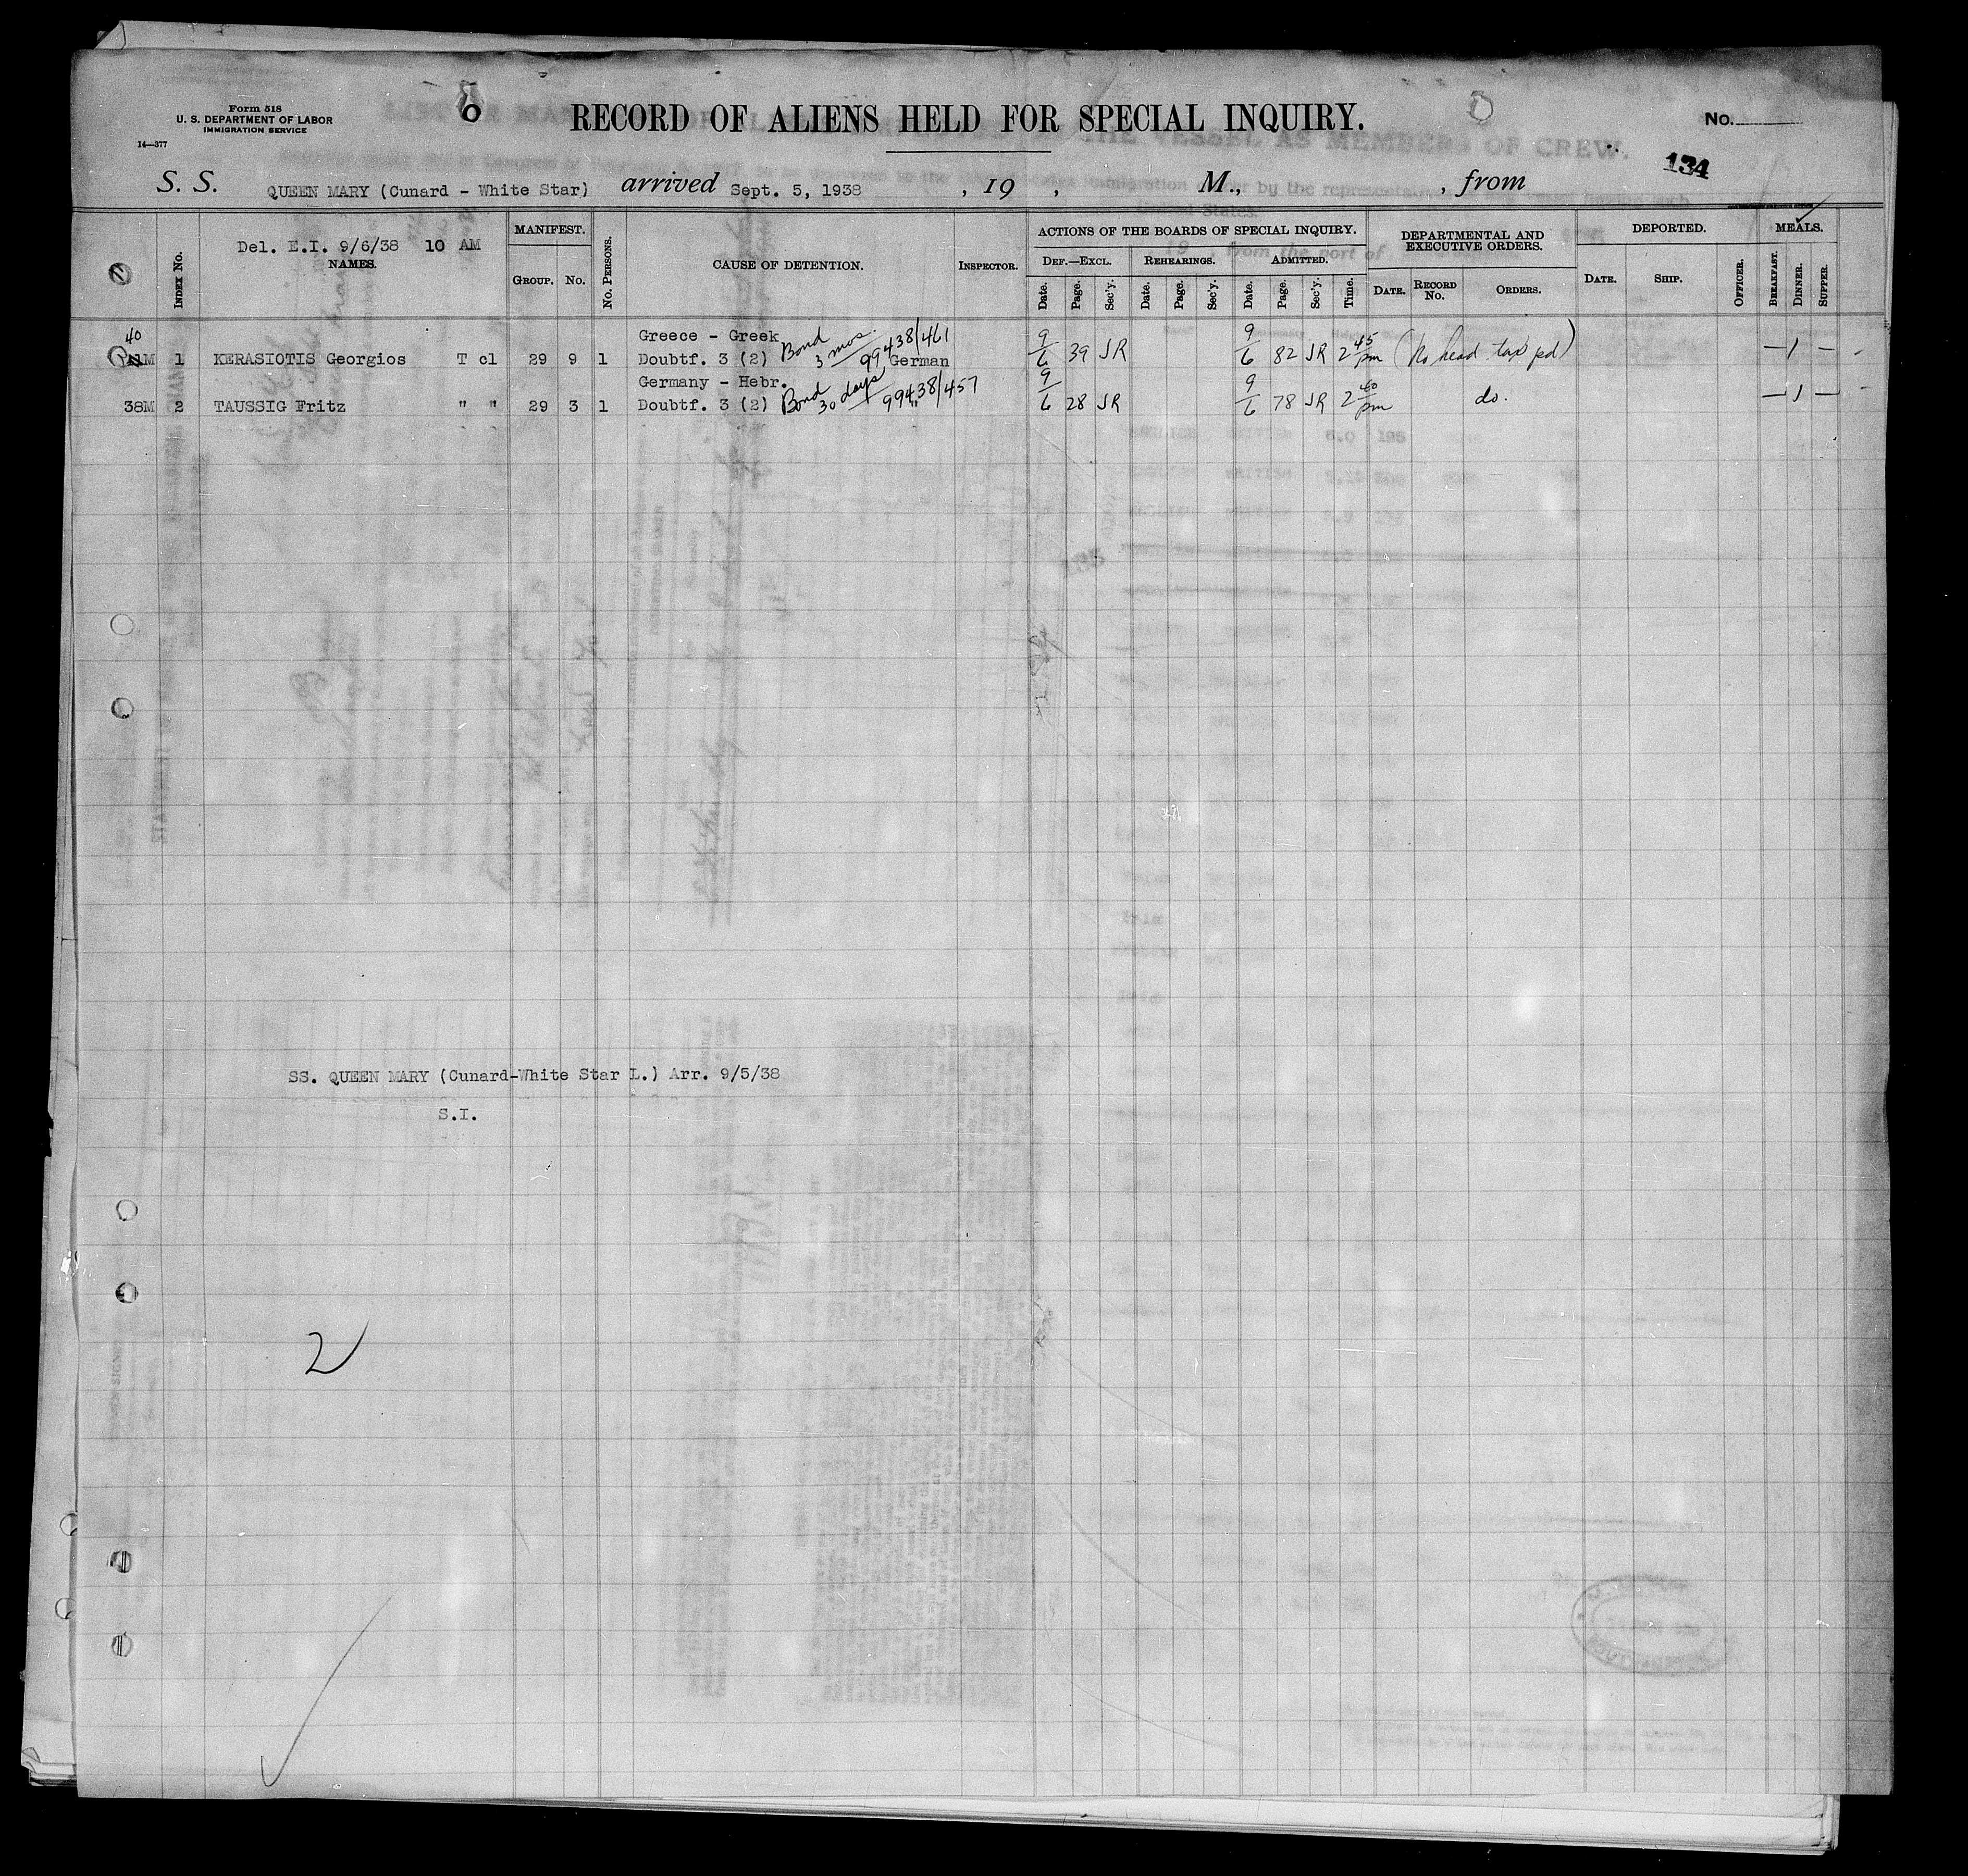 Form 518
U. S. DEPARTMENT OF LABOR
IMMIGRATION SERVICE
14—377
O RECORD OF ALIENS HELD FOR SPECIAL INQUIRY.
No.
134
S. S. QUEEN MARY (Cunard - White Star) arrived Sept. 5, 1938 , 19 , M., , from
Del. E.I. 9/6/38 10 AM
MANIFEST.
ACTIONS OF THE BOARDS OF SPECIAL INQUIRY.
DEPARTMENTAL AND EXECUTIVE ORDERS.
DEPORTED.
MEALS.
INDEX No. NAMES. GROUP. No. No. PERSONS. CAUSE OF DETENTION. INSPECTOR.
DEF.—EXCL. REHEARINGS. ADMITTED.
Date. Page. Sec'y. Date. Page. Sec'y. Date. Page. Sec'y. Time. DATE. RECORD No. ORDERS. DATE. SHIP. OFFICER. BREAKFAST. DINNER. SUPPER.
40 Greece - Greek
1 KERASIOTIS Georgios T cl 29 9 1 Doubtf. 3 (2) Bond 3 mos. 99438/461 German 9/6 39 JR 9/6 82 JR 2 45 pm (No head tax pd) — 1 —
Germany - Hebr.
38M 2 TAUSSIG Fritz " " 29 3 1 Doubtf. 3 (2) Bond 30 days 99438/457 " 9/6 28 JR 9/6 78 JR 2 40 pm do. — 1 —
SS. QUEEN MARY (Cunard-White Star L.) Arr. 9/5/38
S.I.
2